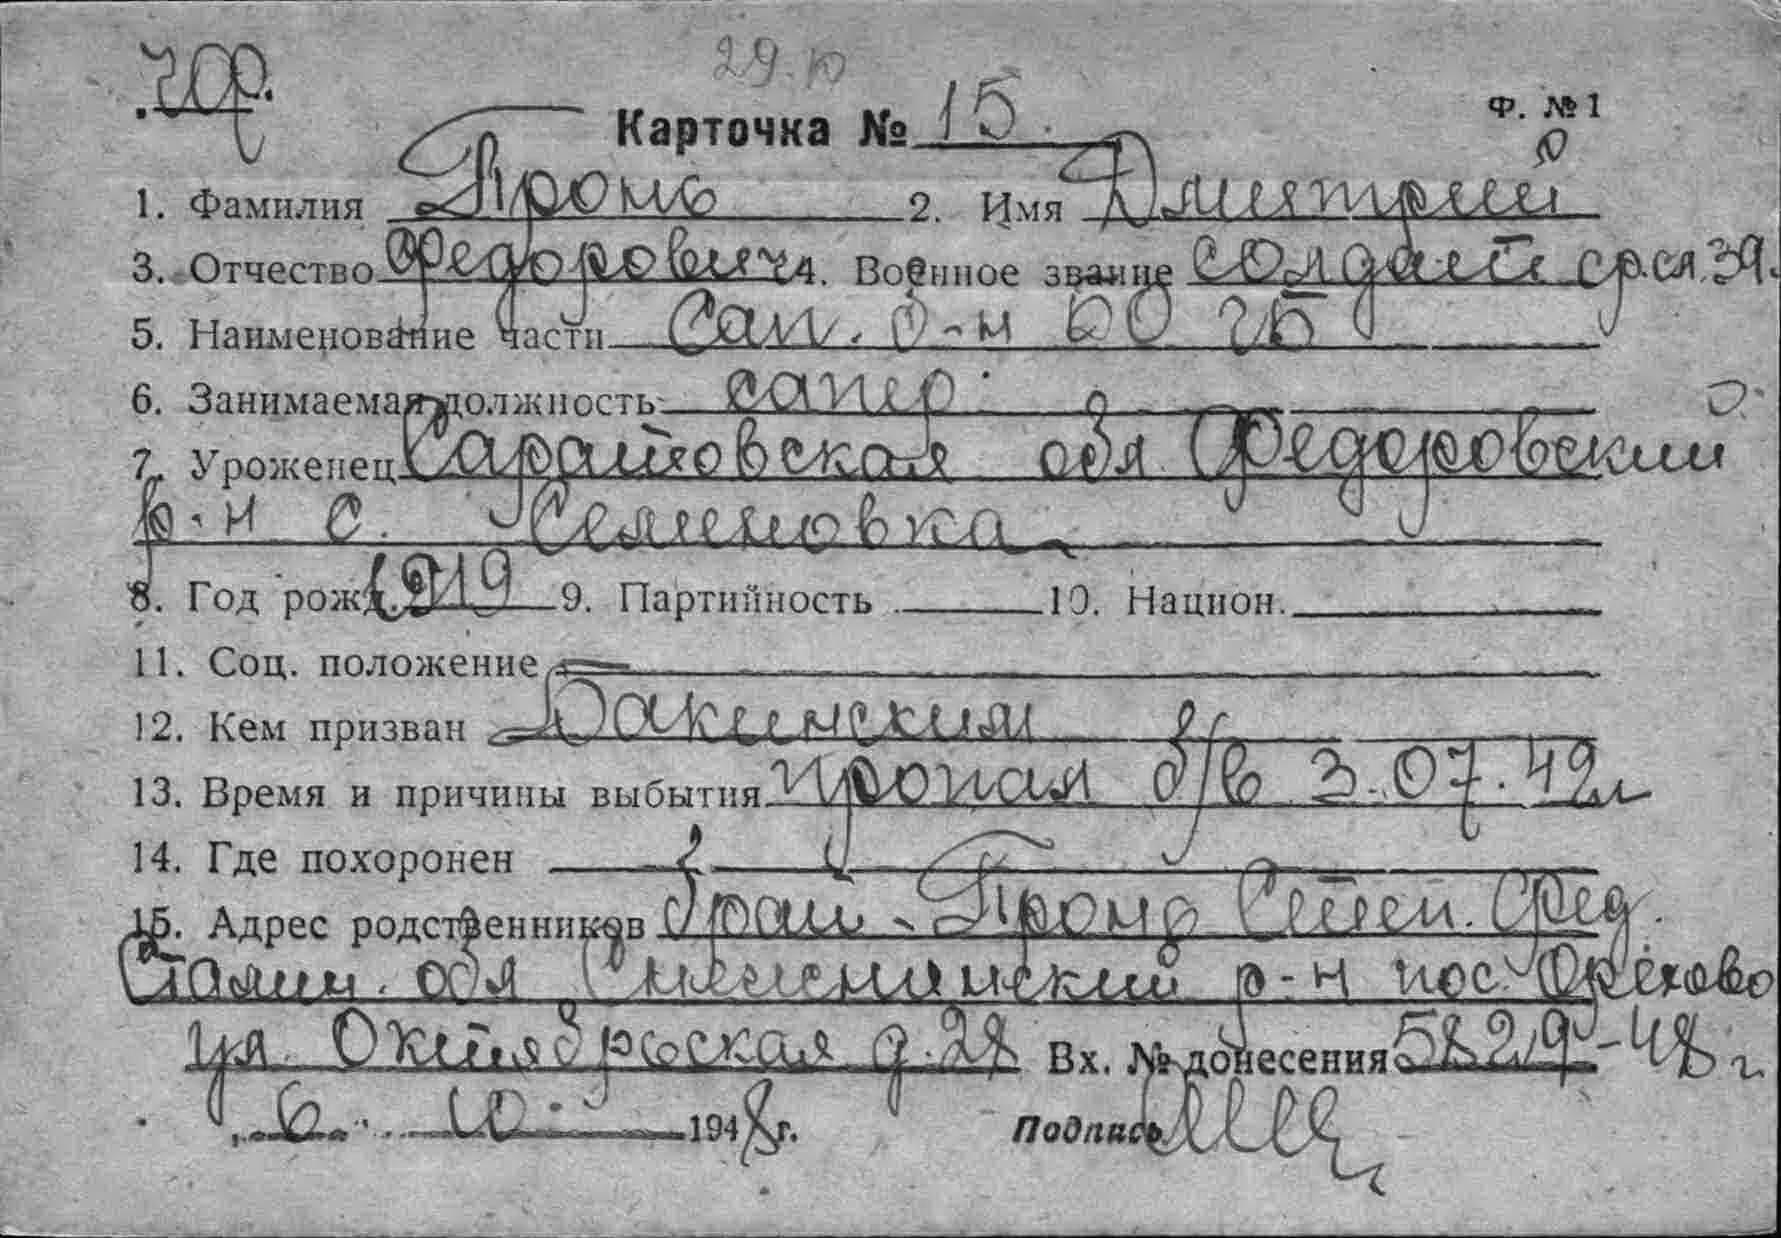 29.10
Карточка № 15.
Ф. № 1
1. Фамилия Промь 2. Имя Дмитрий
3. Отчество Федорович 4. Военное звание солдат ср.сл.39.
5. Наименование части Сап. б-н 60 гб
6. Занимаемая должность сапер
7. Уроженец Саратовская обл. Федоровский
р-н с. Семеновка
8. Год рожд. 1919 9. Партийность 10. Национ.
11. Соц. положение
12. Кем призван Бакинским
13. Время и причины выбытия пропал б/в 3.07.42г
14. Где похоронен
15. Адрес родственников брат - Промь Степ. Фед.
Сталин. обл р-н пос. Орехово
ул. Октябрьская д.28 Вх. № донесения 58219-48 г.
6. 10. 1948 г. Подпись